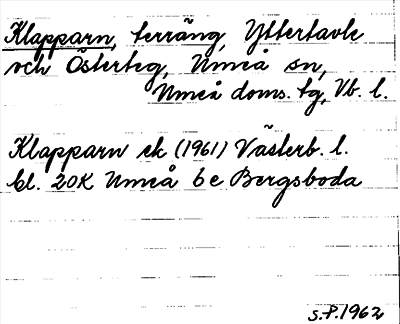 Klapparn, terräng, Yttertavle
och Österteg, Umeå sn,
Umeå doms. tg, Vb. l.
Klapparn ek (1961) Västerb. l.
bl. 20K Umeå 6e Bergsboda
S.P.1962